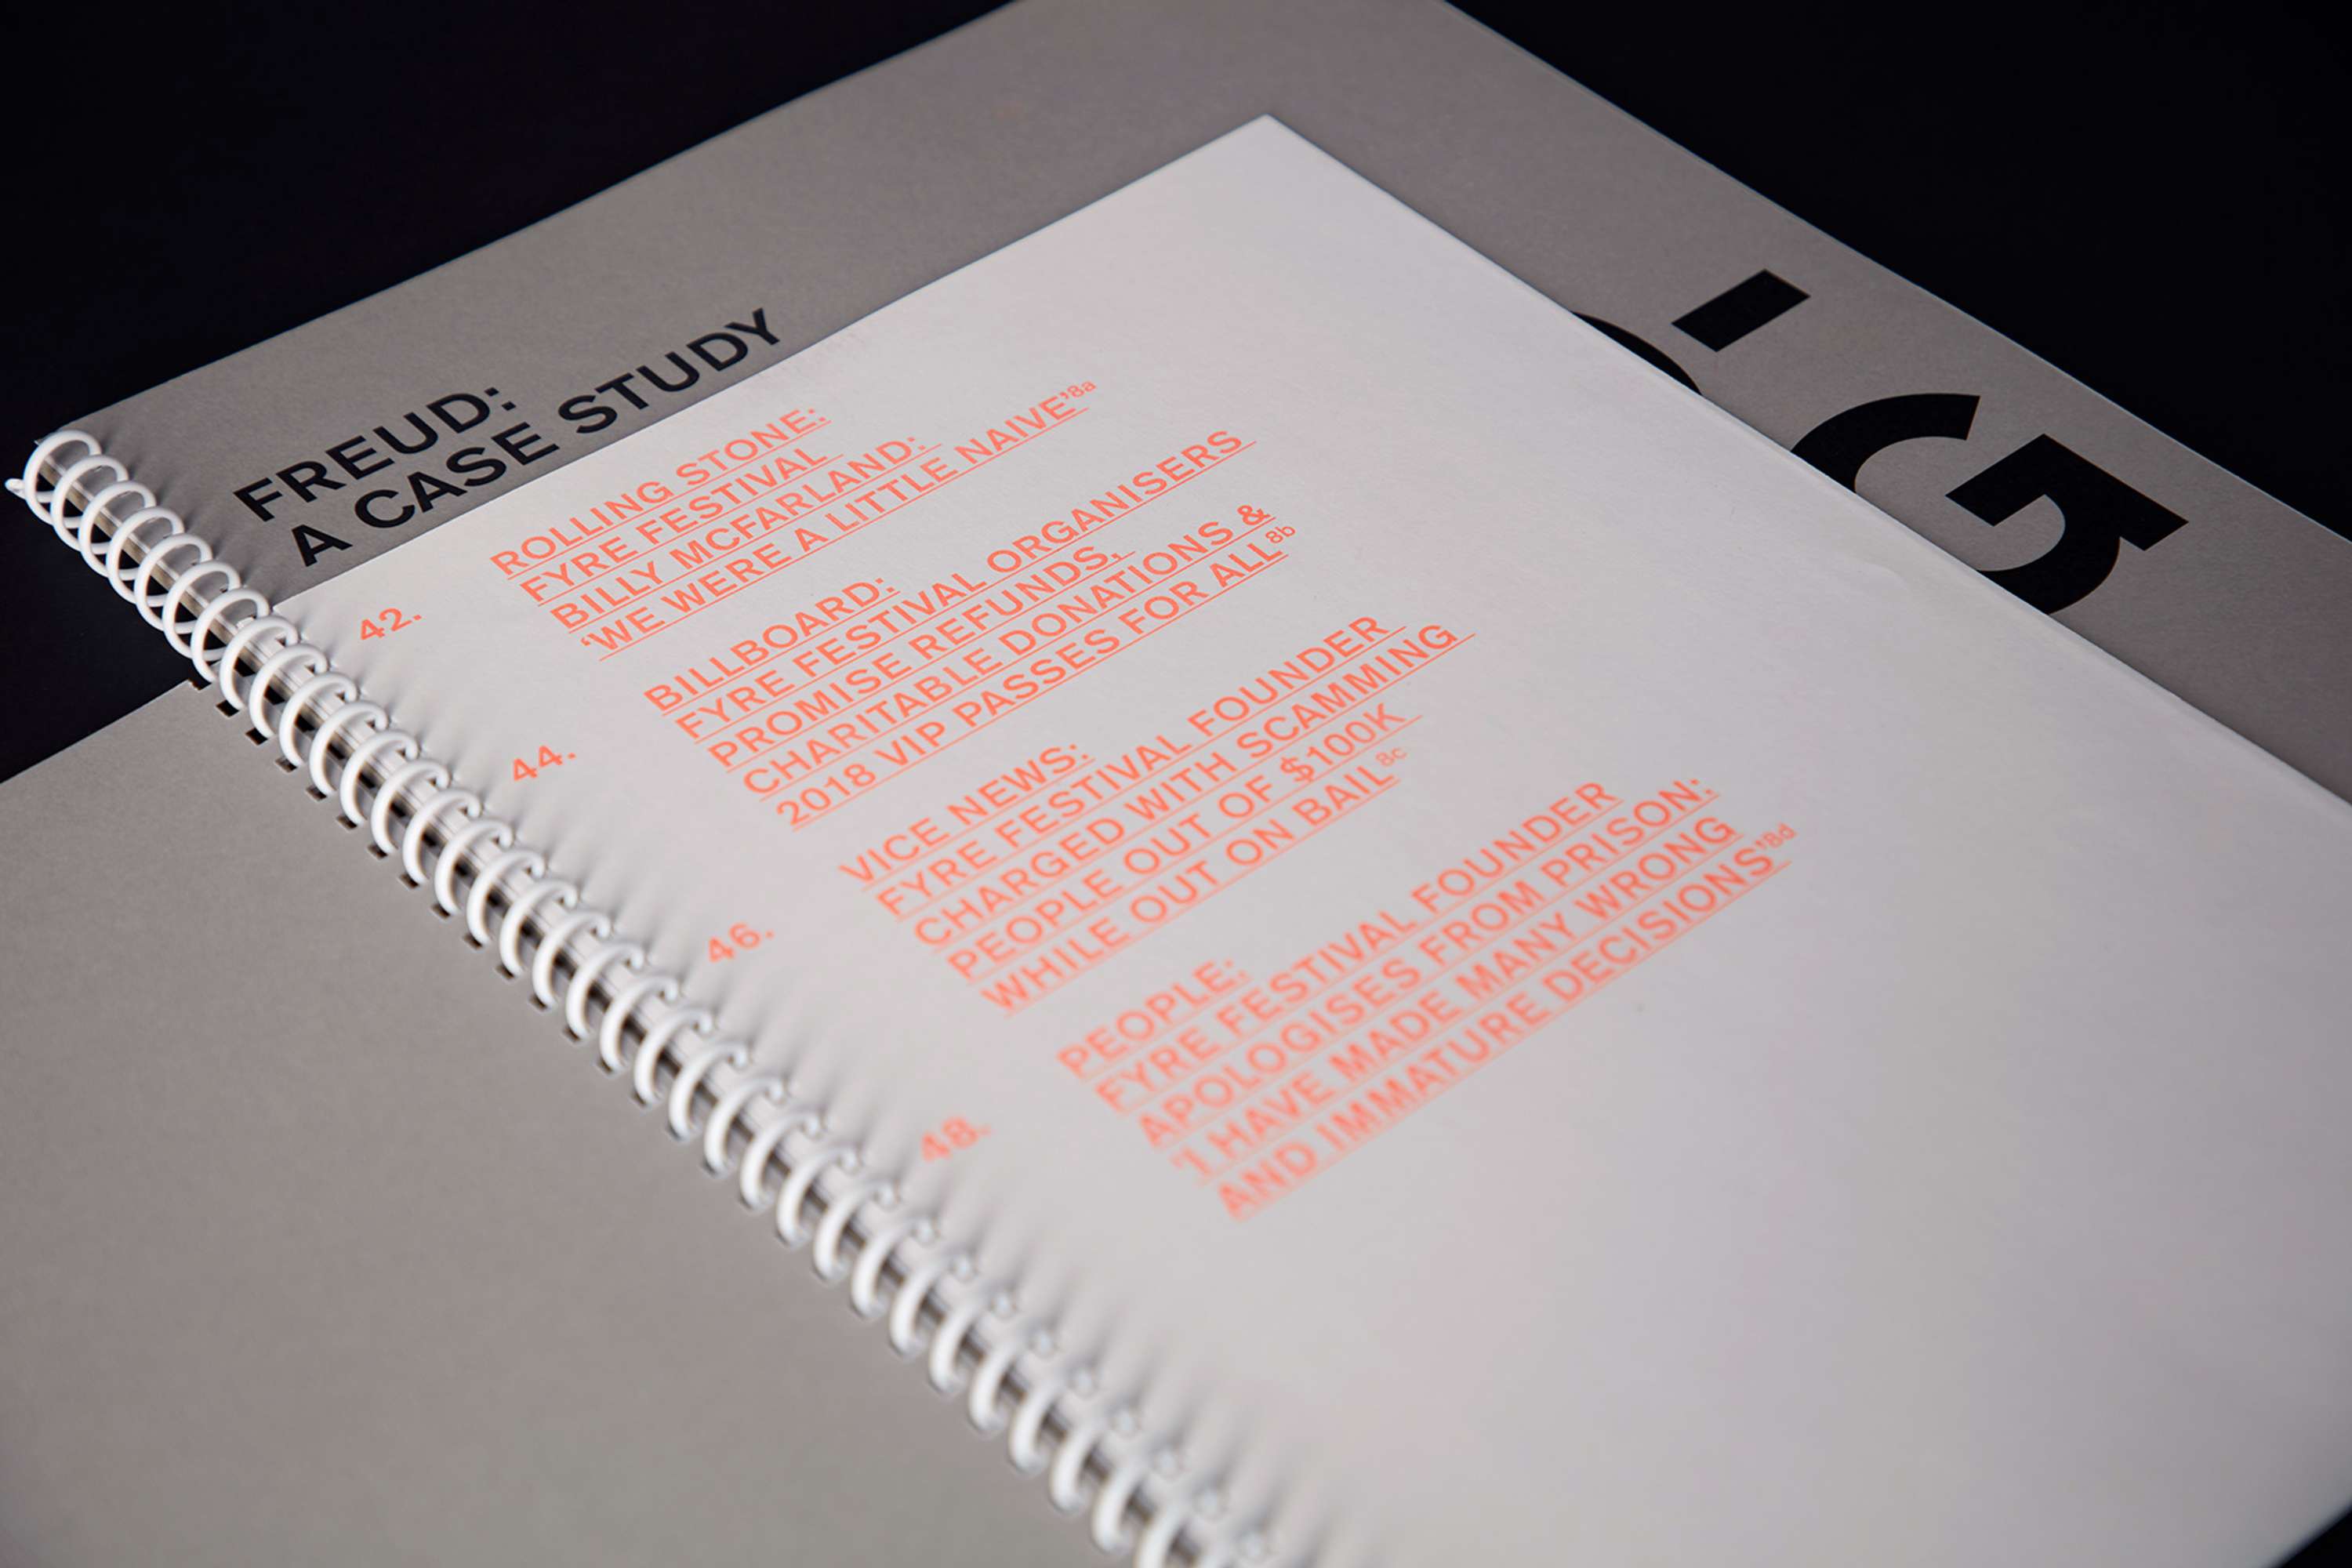 FREUD:
A CASE STUDY
42.
ROLLING STONE:
FYRE FESTIVAL
BILLY MCFARLAND:
‘WE WERE A LITTLE NAIVE’8a
44.
BILLBOARD:
FYRE FESTIVAL ORGANISERS
PROMISE REFUNDS,
CHARITABLE DONATIONS &
2018 VIP PASSES FOR ALL8b
46.
VICE NEWS:
FYRE FESTIVAL FOUNDER
CHARGED WITH SCAMMING
PEOPLE OUT OF $100K
WHILE OUT ON BAIL8c
48.
PEOPLE:
FYRE FESTIVAL FOUNDER
APOLOGISES FROM PRISON:
‘I HAVE MADE MANY WRONG
AND IMMATURE DECISIONS’8d